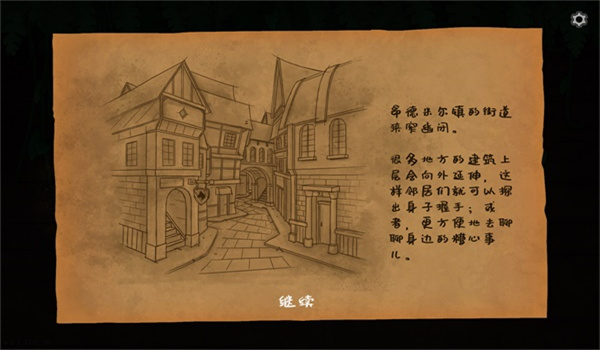 昂德朵尔镇的街道
狭窄幽闭。
很多地方的建筑上
层会向外延伸，这
样邻居们就可以探
出身子握手；或
者，更方便地去聊
聊身边的糟心事
儿。
继续